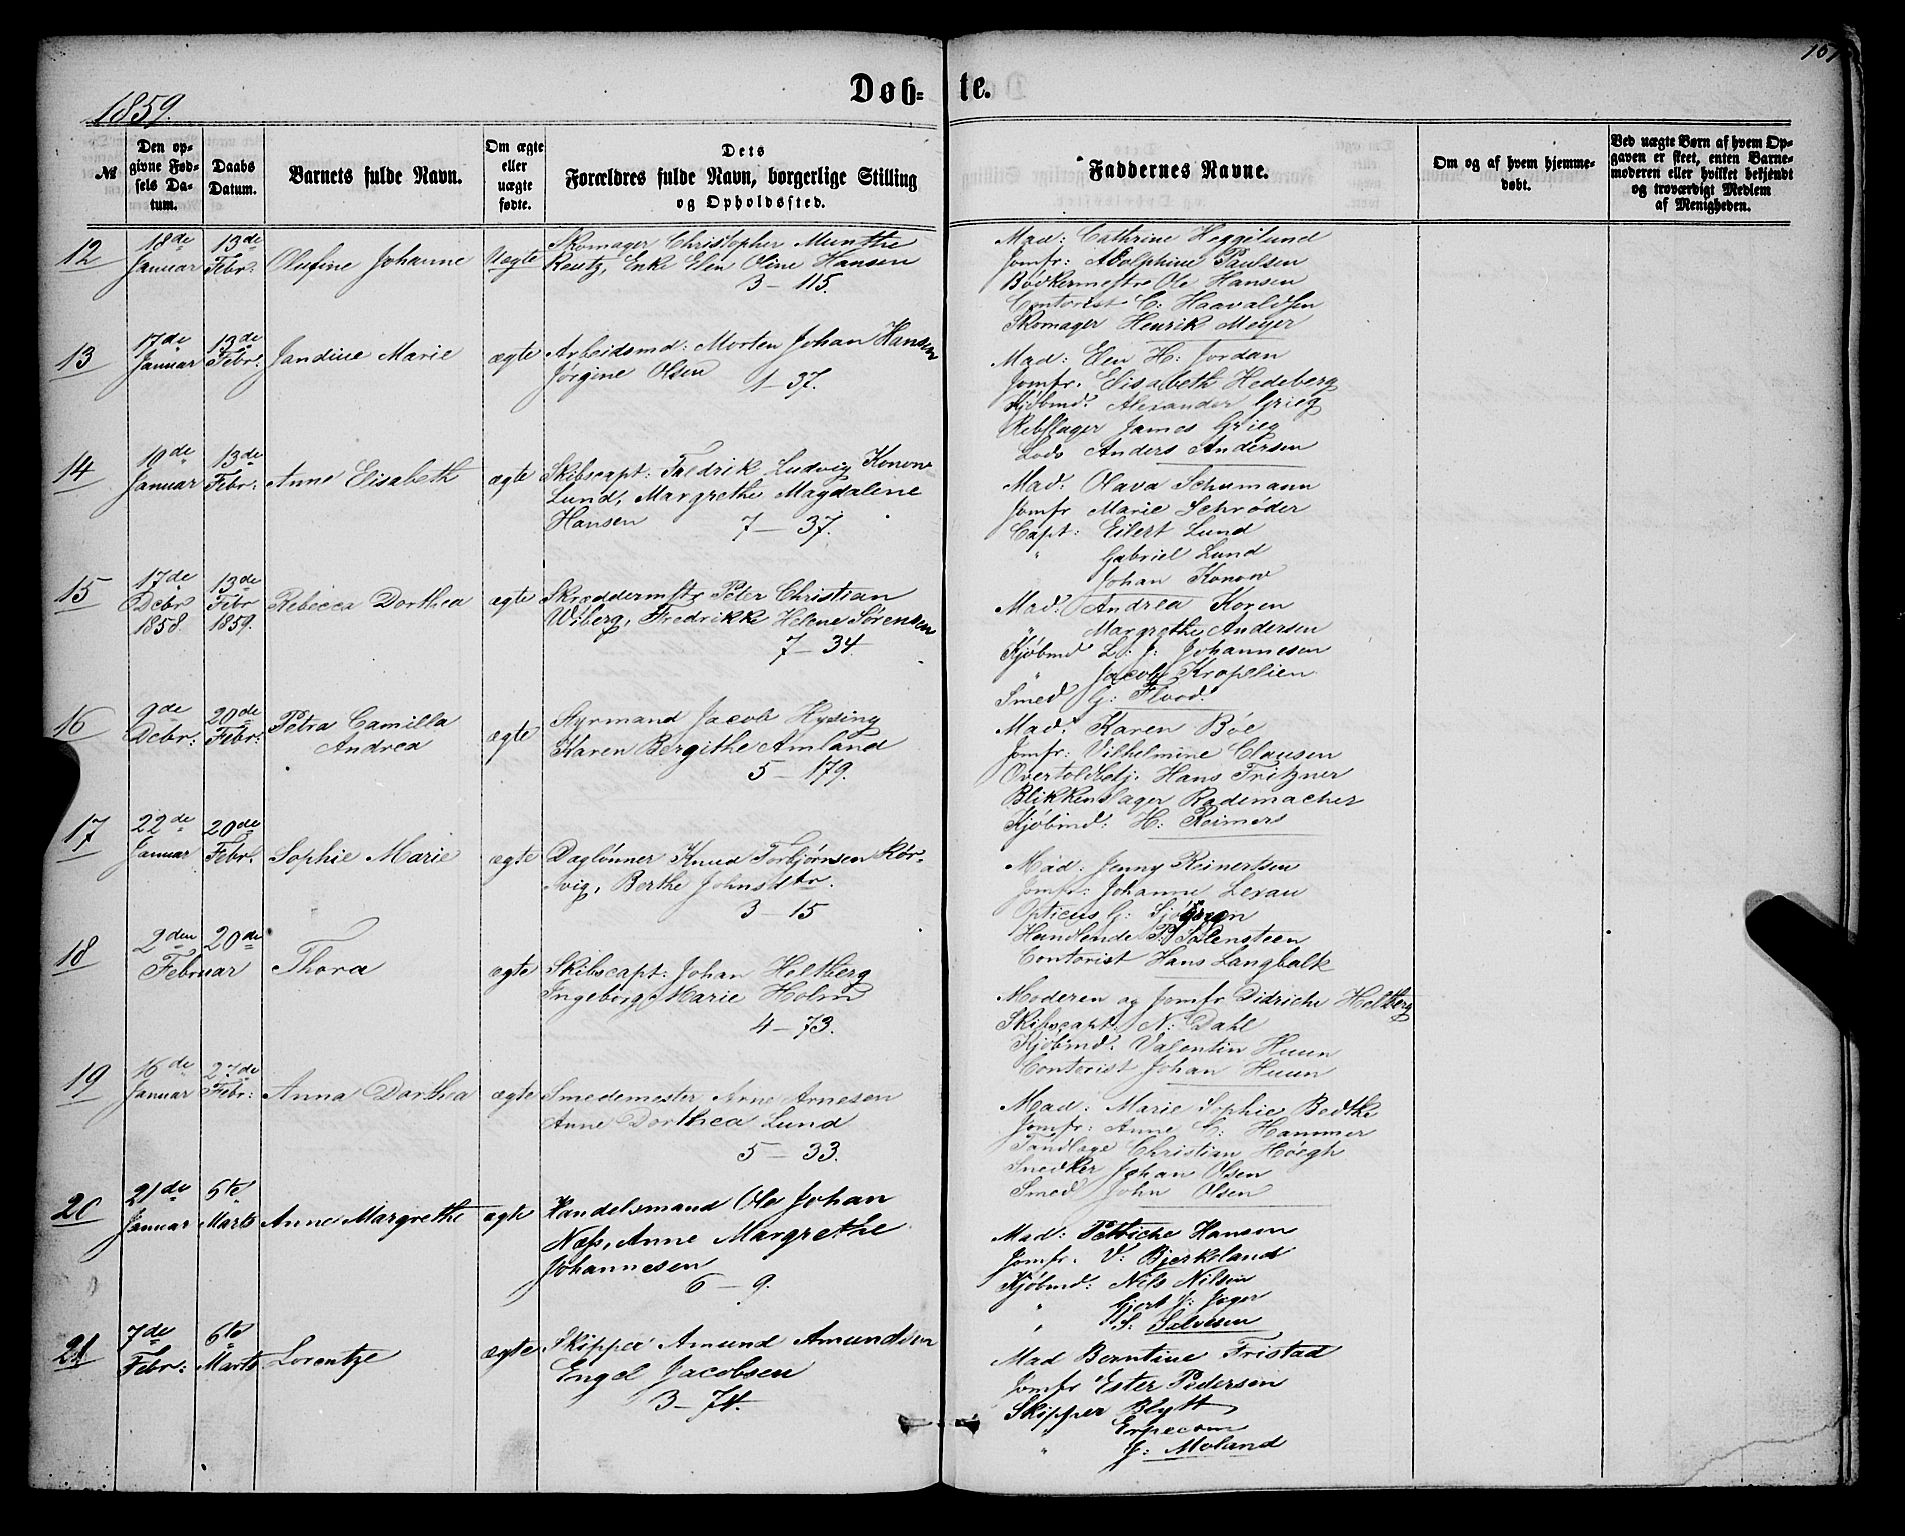 1859.
Døb-te.
107
№
Den opgivne Fødsels Datum.
Daabs Datum.
Barnets fulde Navn.
Om ægte eller uægte fødte.
Dets Forældres fulde Navn, borgerlige Stilling og Opholdssted.
Faddernes Navne.
Om og af hvem hjemmedøbt.
Ved uægte Børn af hvem Opgaven er skeet, enten Barnemoderen eller hvilket bekjendt og troværdigt Medlem af Menigheden.
12
18de Januar
13de Febr.
Olufine Johanne
Uægte
Skomager Christopher Munthe
Reutz, Enke Elen Oline Hansen
3 - 115.
Mad: Cathrine Heggelund
Jomfr: Adolphine Paulsen
Bødkermestr Ole Hansen
Contorist C: Haavaldsen
Skomager Henrik Meyer
13
17de Januar
13de Febr.
Jandine Marie
ægte
Arbeidsmd: Morten Johan Hansen
Jørgine Olsen
1 - 37.
Mad: Elen H: Jordan
Jomfr. Elisabeth Hedeberg
Kjøbmd. Alexander Grieg
Rebslager James Grieg
Lods Anders Andersen
14
19de Januar
13de Febr.
Anne Elisabeth
ægte
Skibscapt: Fredrik Ludvig Konow
Lund, Margrethe Magdalene
Hansen
7 - 37.
Mad: Olava Schumann
Jomfr Marie Schrøder
Capt: Eilert Lund
" Gabriel Lund
Johan Konow
15
17de Debr 1858.
13de Febr 1859.
Rebecca Dorthea
ægte
Skræddermstr Peter Christian
Wiberg, Fredrikke Helene Sørensen
7 - 34
Mad: Andrea Koren
" Margrethe Andersen
Kjøbmd L: J: Johannesen
" Jacob Kropelien
Smed G: Flood.
16
9de Debr:
20de Febr:
Petra Camilla
Andrea
ægte
Styrmand Jacob Hysing
Karen Bergithe Amland
5 - 179.
Mad. Karen Bøe
Jomfr: Vilhelmine Clausen
Overtoldbetj. Hans Fritzner
Blikkenslager Rademacher
Kjøbmd: H: Reimers
17
22de Januar
20de Febr.
Sophie Marie
ægte
Daglønner Knud Torbjørnsen Kør-
vig, Berthe Johnsdtr.
3 - 15
Mad: Jenny Reinertsen
Jomfr: Johanne Lexau
Opticus G: Sjøgren
Handlende P: Salensteen
Contorist Hans Langbalk
18
2den Februar
20de
Thora
ægte
Skibscapt: Johan Heltberg
Ingeborg Marie Holm
4 - 73.
Moderen og Jomfr Didriche Heltberg
Skibscapt: N: Dahl
Kjøbmd. Valentin Huun
Contorist Johan Huun
19
16de Januar
27de Febr:
Anna Dorthea
ægte
Smedemester Arne Arnesen
Anne Dorthea Lund
5 - 33.
Mad: Marie Sophie Bedtke
Jomfr: Anne C: Hammer
Tandlæge Christian Høegh
Snedker Johan Olsen
Smed John Olsen
20
21de Januar
6te Marts
Anne Margrethe
ægte
Handelsmand Ole Johan
Næss, Anne Margrethe
Johannesen
6 - 9.
Mad: Hansen
Jomfr. V: Bjerkeland
Kjøbmd: Nils Nilsen
" Gjert J: Jæger
" S: Salvesen
21
7de Febr:
6te Marts
Lorentze
ægte
Skipper Amund Amundsen
Engel Jacobsen
3 - 74.
Mad Berntine Fristad
Jomfr Ester Pedersen
Skipper Blytt
Erpecom
" J: Moland